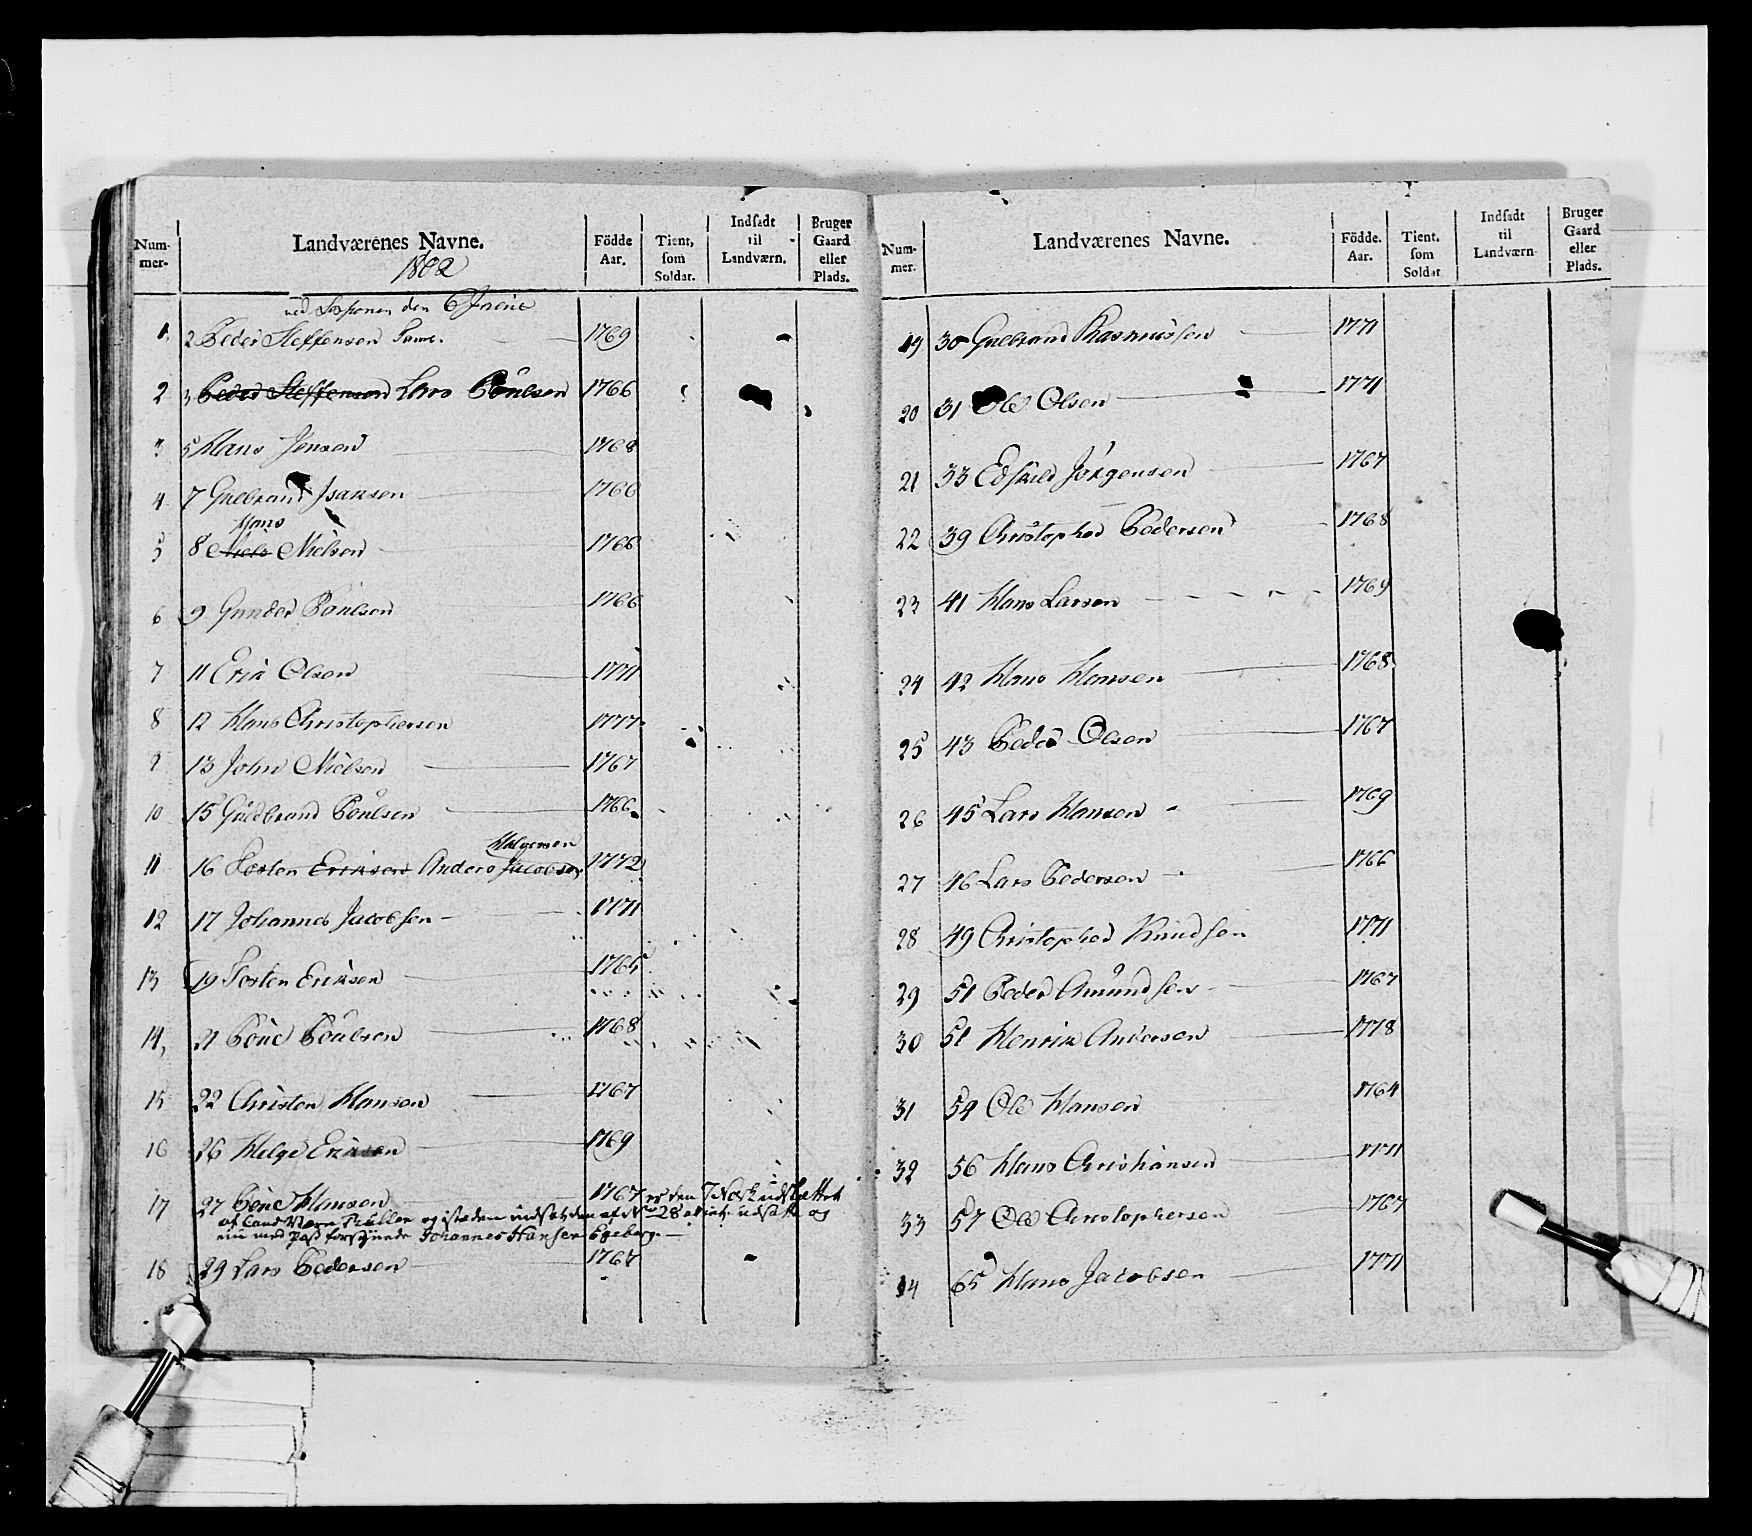 Num-
mer-
Landværenes Navne.
1802
Födde
Aar.
Tient,
som
Soldat.
Indsadt
til
Landværn.
Bruger
Gaard
eller
Plads.
ved Sesponen den 6 Junii
1. 2 Peder Steffensen Samt. 1769
2 3 Peder Steffensen Lars Poulsen 1766
3 5 Hans Jensen 1768
4 7 Gulbrand Isaksen 1766
Hans
5 8 Niels Nielsen 1766
6 9 Gunder Poulsen 1766
7 11 Erik Olsen 1771
8 12 Hans Christophersen 1777
9 13 John Nielsen 1767
10 15 Guldbrand Poulsen 1766
Halvorsen
11 16 Torsten Eriksen Anders Jacobsen 1772
12 17 Johannes Jacobsen 1771
13 19 Tosten Eriksen 1765
14, 21 Poul Poulsen 1768
15 22 Christen Hansen 1767
16 26 Helge Eriksen 1769
17 27 Poul Hansen 1767 er den 7 Novb. udslettet
af Land Værn Rullen og isteden indsat den af No 28 udsatte og
nu med Pas forsynede Johannes Hansen Egeberg
18 29 Lars Pedersen 1767
Num-
mer.
Landværenes Navne.
Födde.
Aar.
Tient.
som
Soldat
Indsadt
til
Landværn-
Bruger
Gaard
eller
Plads.
19 30 Gulbrand Rasmussen 1771
20 31 Ole Olsen 1771
21 33 Edskild Jörgensen 1767
22 39 Christopher Pedersen 1768
23 41 Hans Larsen 1769
24 42 Hans Hansen 1768
25 43 Peder Olsen 1767
26 45 Lars Hansen 1769
27 46 Lars Pedersen 1766
28 49 Christopher Knudsen 1771
29 51 Peder Amundsen 1767
30 51 Henrik Andersen 1778
31 54 Ole Hansen 1764
32 56 Hans Christiansen 1771
33 57 Ole Christophersen 1767
34 65 Hans Jacobsen 1771